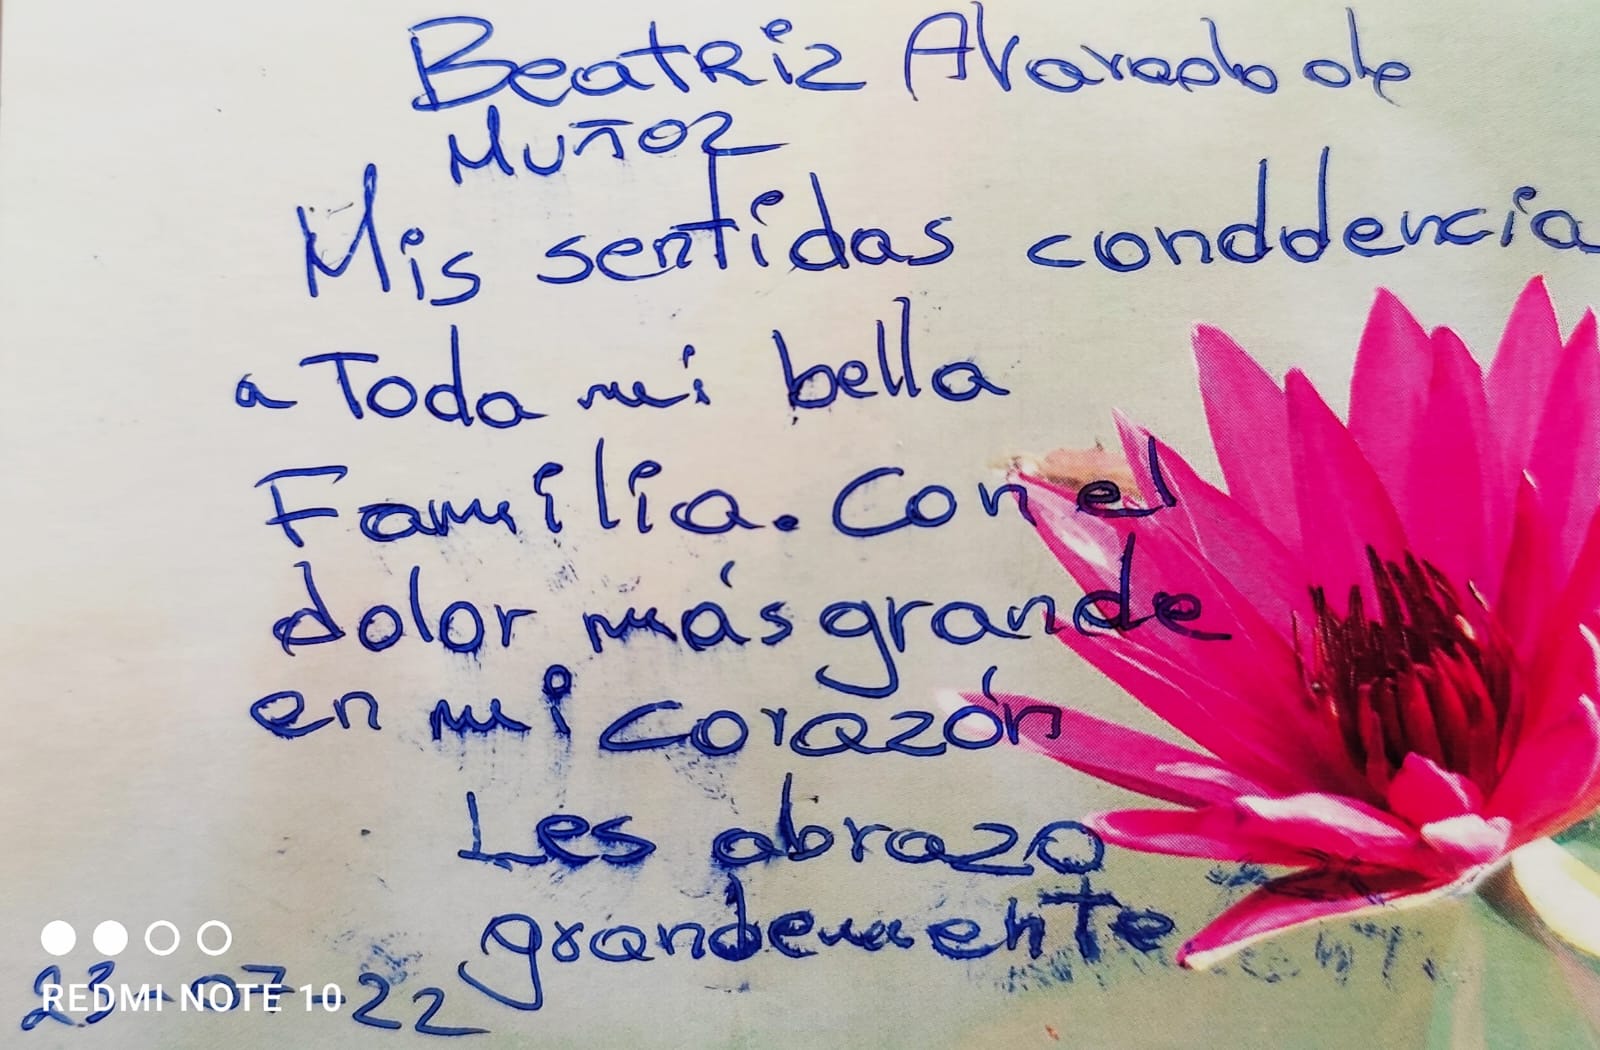 Beatriz Alvarado de
Muñoz
Mis sentidas conddencia
a Toda mi bella
Familia. Con el
dolor más grande
en mi corazón
Les abrazo
grandemente
23-07-22
REDMI NOTE 10